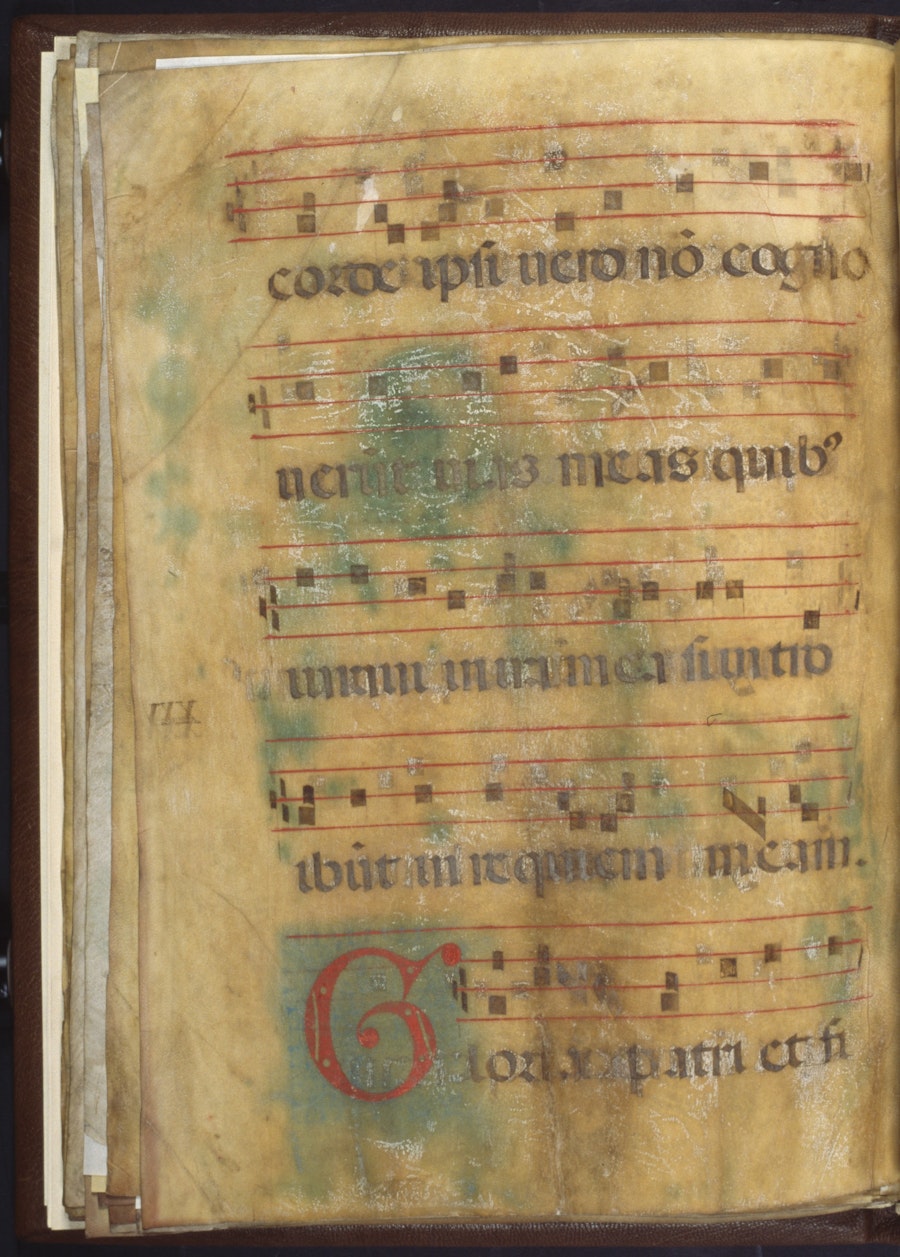 corde ipsi uero nō cogno
uerūt uias meas quibꝰ
iuraui in ira mea si in tro
ibūt in requiem meam.
Gloria patri et fi